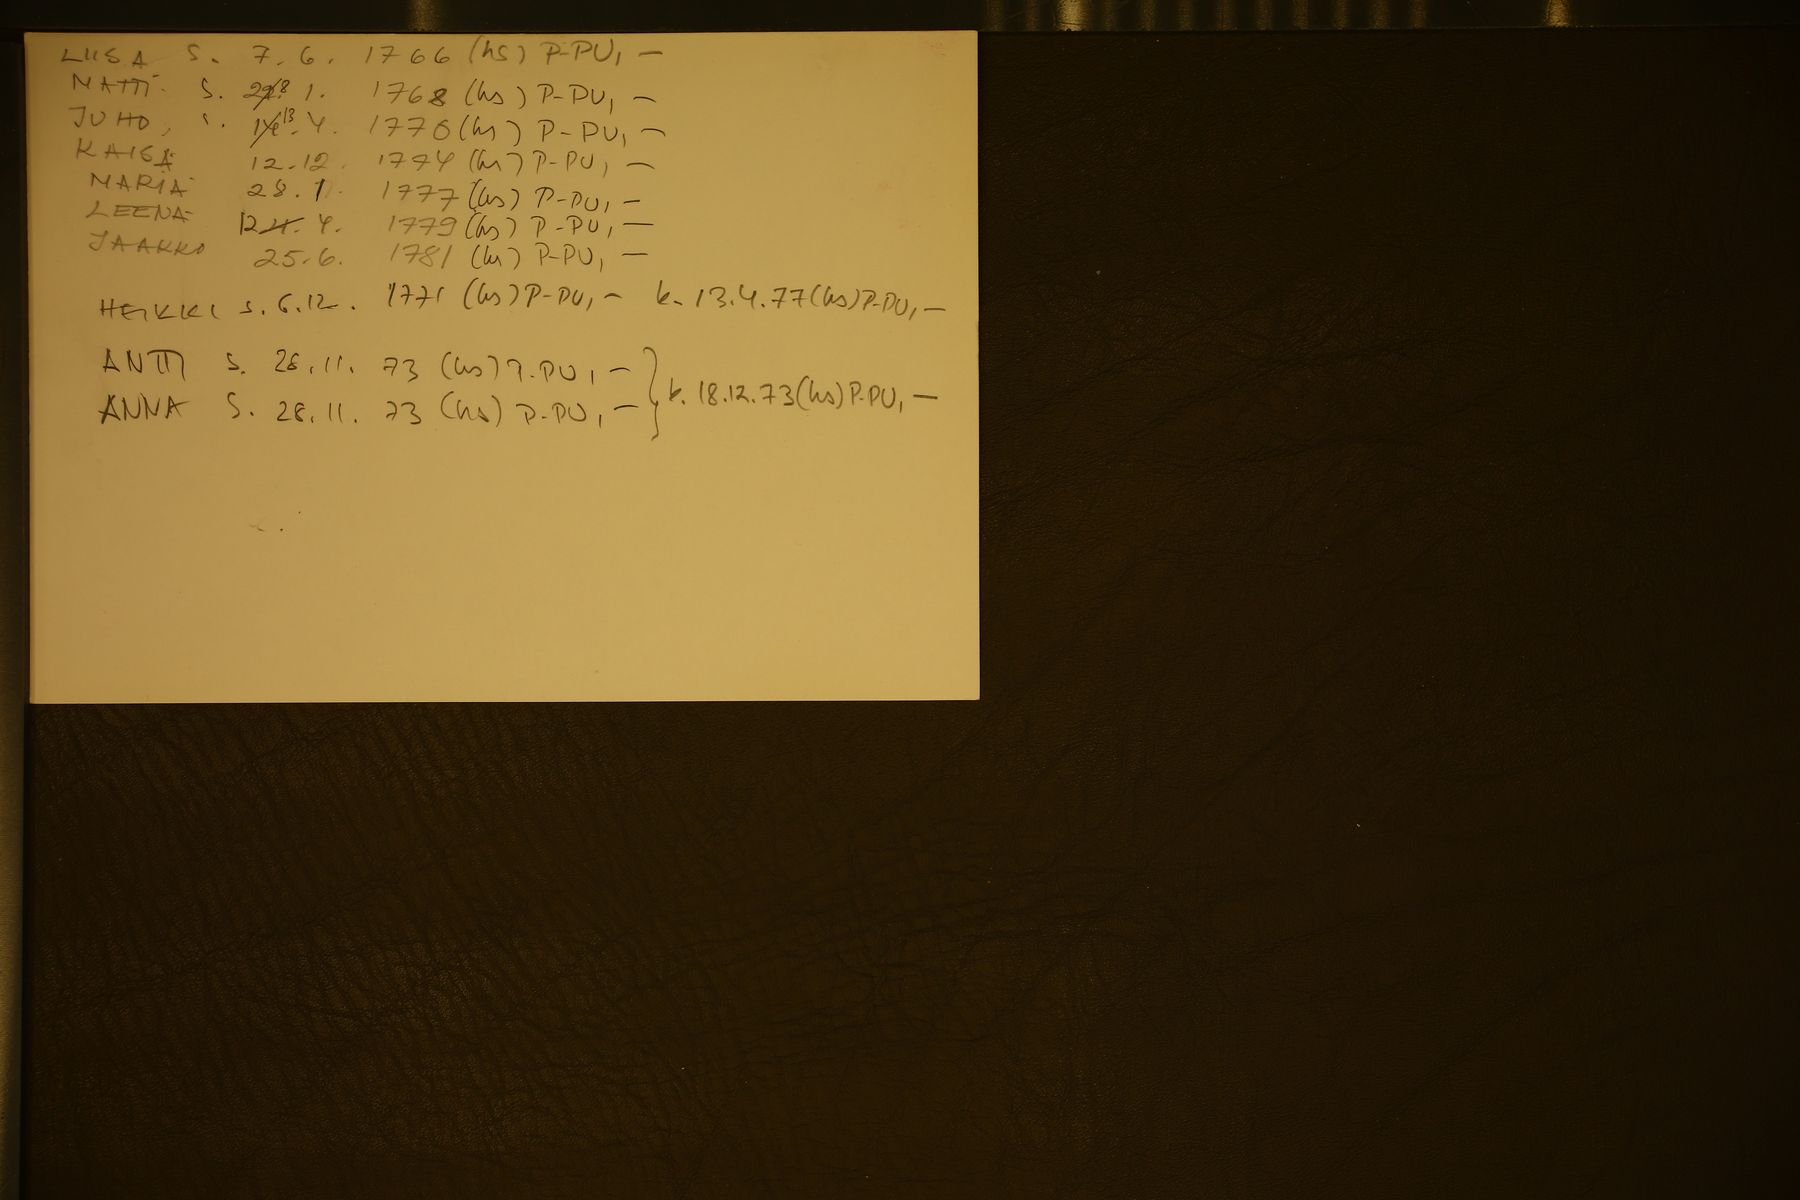 LIISA S. 7.6. 1766 (hs) P-PU, —
MATTI S. 28. 1. 1768 (hs) P-PU, —
JUHO, S. 13. 4. 1770 (hs) P-PU, —
KAISA 12.12. 1774 (hs) P-PU, —
MARIA 28.1. 1777 (hs) P-PU, —
LEENA 12. 4. 1779 (hs) P-PU, —
JAAKKO 25.6. 1781 (hs) P-PU, —
HEIKKI S. 6.12. 1771 (hs) P-PU, — k. 13.4.77 (hs) P-PU, —
ANTTI S. 28.11. 73 (hs) P-PU, —
ANNA S. 28.11. 73 (hs) P-PU, —
k. 18.12.73 (hs) P-PU, —